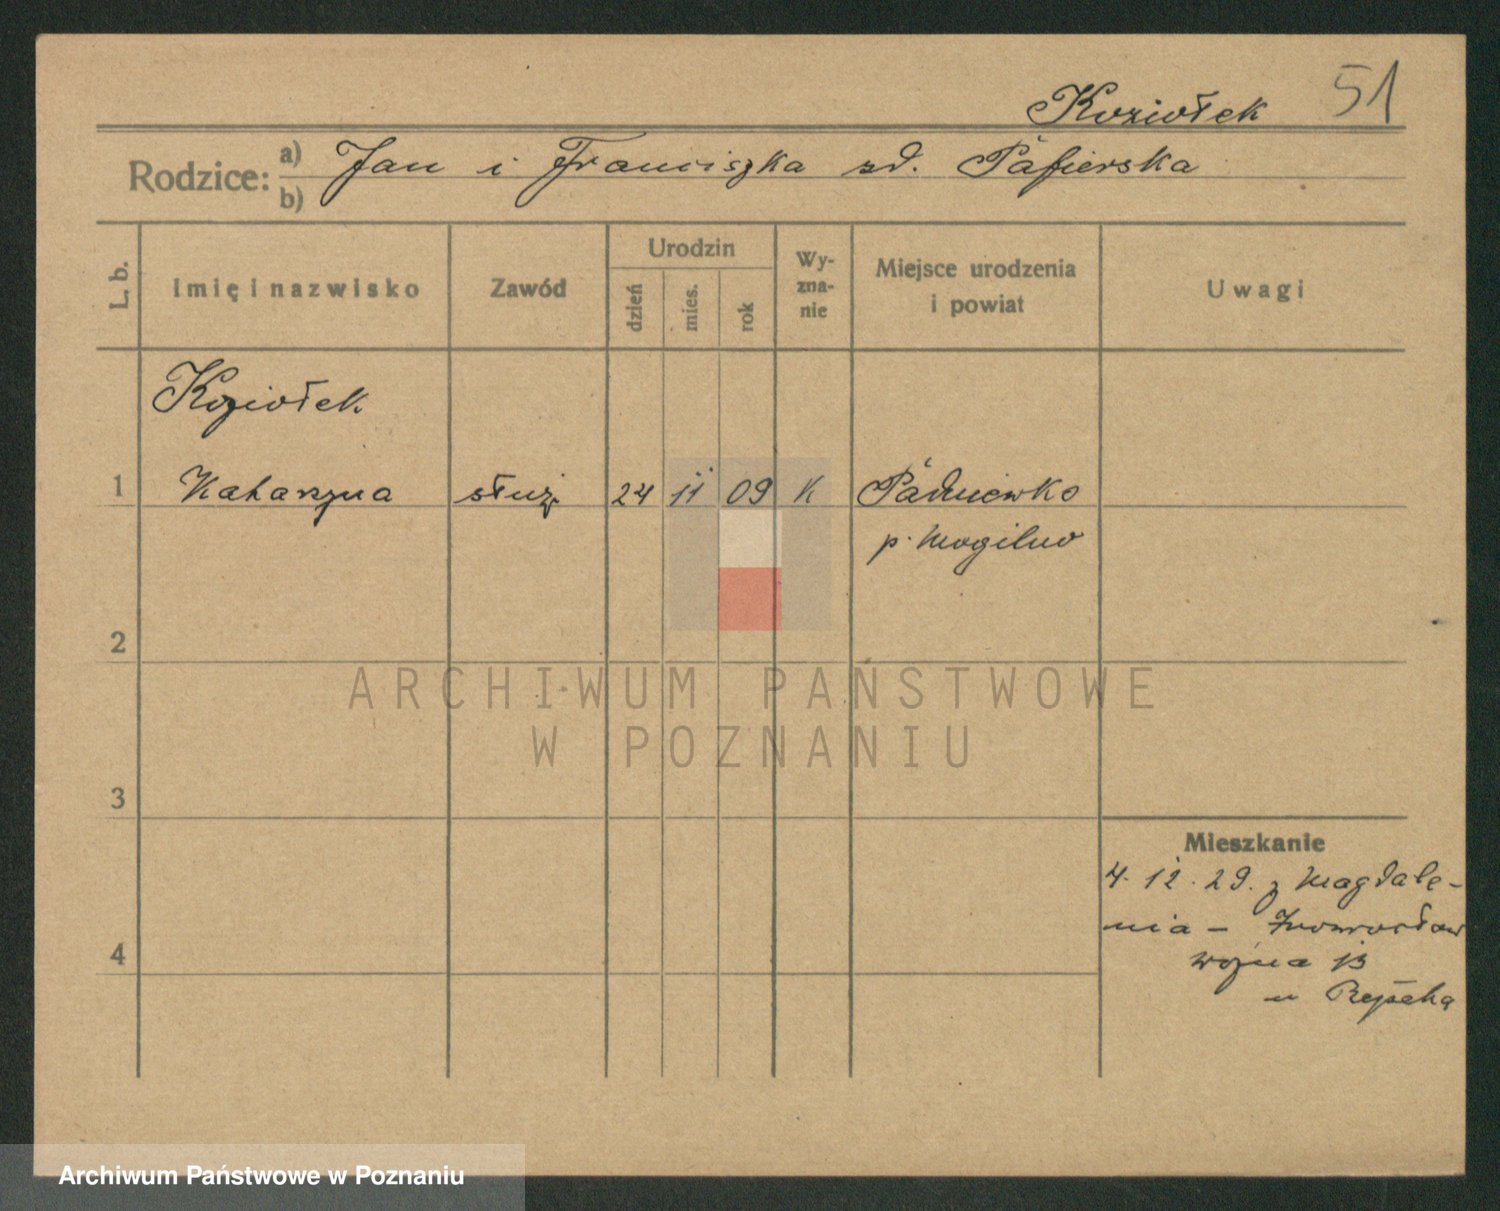 Koziołek 51
Rodzice: a) b) Jan i Franciszka zd.
L. b. Imię i nazwisko Zawód Urodzin dzień mies. rok Wyznanie Miejsce urodzenia i powiat Uwagi
Koziołek
1 Katarzyna służ. 24 11 09 K Padniewko
p. Mogilno
2
ARCHIWUM PAŃSTWOWE
W POZNANIU
3
Mieszkanie
4. 12. 29. z Magdale-
nia –
4
u
Archiwum Państwowe w Poznaniu